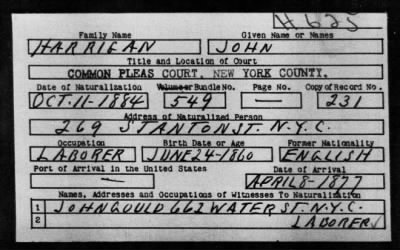 H625
Family Name Given Name or Names
HARRIGAN JOHN
Title and Location of Court
COMMON PLEAS COURT, NEW YORK COUNTY.
Date of Naturalization Volume or Bundle No. Page No. Copy of Record No.
OCT. 11-1884 549 — 231
Address of Naturalized Person
269 STANTON ST. N.Y.C.
Occupation Birth Date or Age Former Nationality
LABORER JUNE 24-1860 ENGLISH
Port of Arrival in the United States Date of Arrival
APRIL 8-1877
Names, Addresses and Occupations of Witnesses To Naturalization
1 JOHN GOULD 662 WATER ST. N.Y.C.
2 LABORER